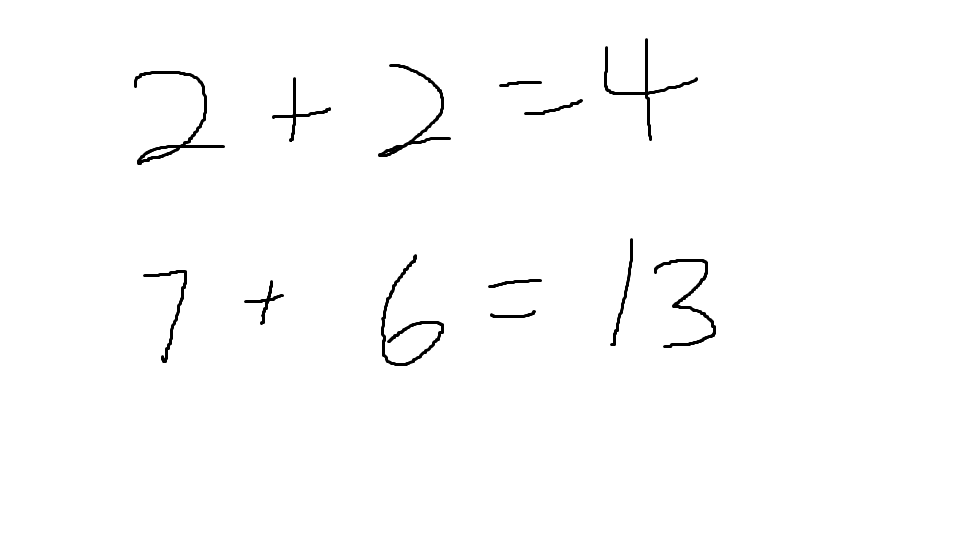 2 + 2 = 4
7 + 6 = 13